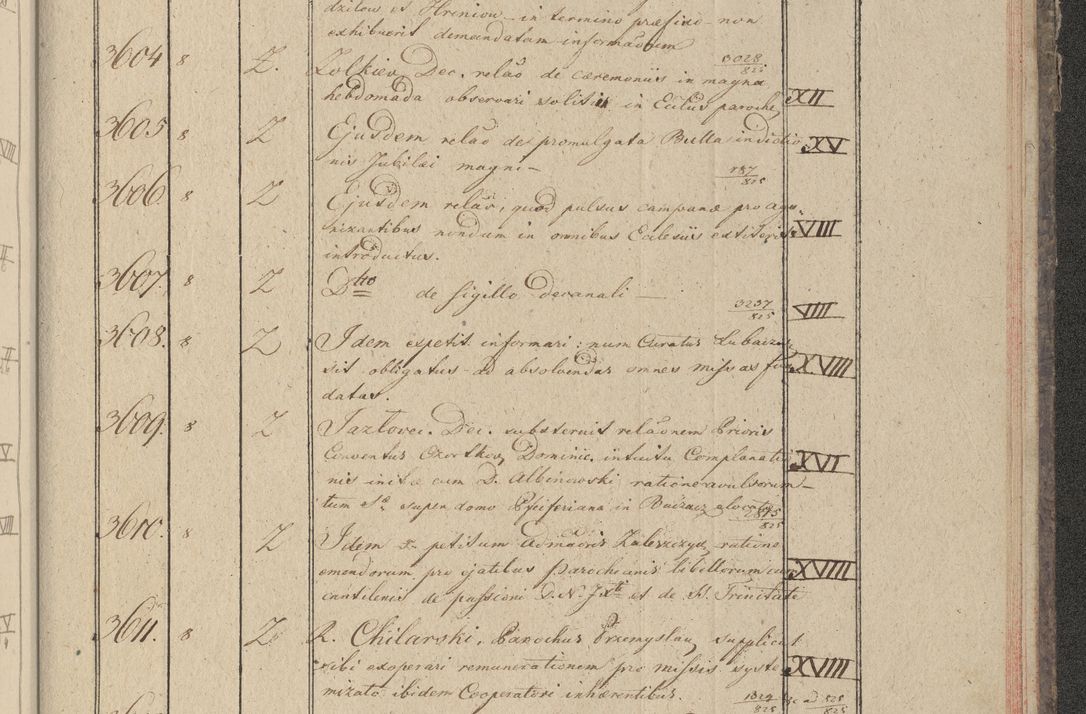 dzilow et Hreniow – in termino præfixo – non
exhibuerit demandatam informaõem
3604 8 Z. Zolkiev. Dec. relaõ de cæremoniis in magna 3028/825
hebdomada observari solitis in Eccliis paroch. XII
3605 8 Z Ejusdem relaõ de promulgata Bulla indictio XV
nis Jubilæi magni – 787/825
3606. 8 Z Ejusdem relaõ, quod pulsus campanæ pro ago
nizantibus nondum in omnibus Eclesiis extiterit XVIII
introductus.
3607. 8 Z Dtto de sigillo decanali — 3237/825 VIIII
3608. 8 Z Idem expetit informari: num Curatus Lubaczov
sit obligatus – ad absolvendas omnes missas fun XVIII
datas.
3609. 8 Z Jazlovec. Dec. substernit relaõnem Prioris
Conventus Czortkov, Dominic. intuitu Complanatio XVI
nis initæ cum D. Albinowski ratione avulsorum –
tum Sæ super domo Pfeiferiana in Buczacz elocatæ 2815/825
3610. 8 Z Idem petitum Zaleszczyk, ratione
emendorum pro ejatibus parochianis libellorum cum XVIII
cantilenis de passioni D. N. J. Xti et de SS. Trinitate
3611. 8 Z R. Chilarski, Parochus Przemyslan, supplicat
sibi exoperari remunerationem pro missis syste XVIII
mizato ibidem Cooperatori inhærentibus. 1024/825 ad 828/825
VIII
II
II
V
VIII
V